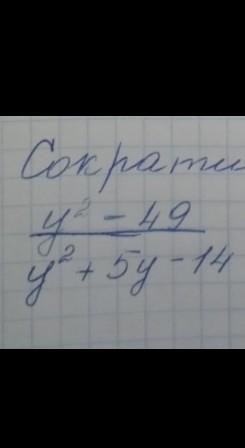 Сократи
y² - 49
y² + 5y - 14